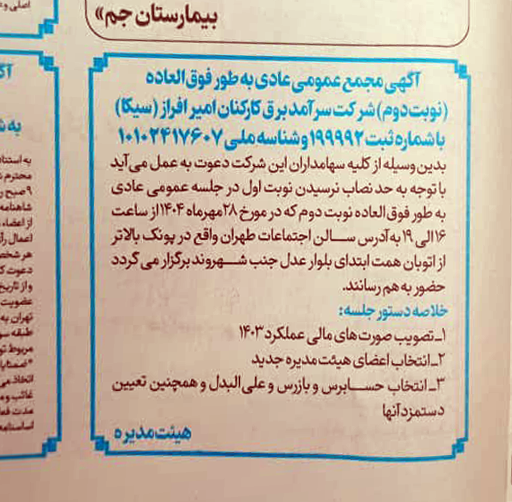 بیمارستان جم»
آگهی مجمع عمومی عادی به طور فوق العاده
(نوبت دوم) شرکت سرآمد برق کارکنان امیر افراز (سیکا)
با شماره ثبت ۱۹۹۹۹۲ و شناسه ملی ۱۰۱۰۲۴۱۷۶۰۷
بدین وسیله از کلیه سهامداران این شرکت دعوت به عمل می‌آید
با توجه به حد نصاب نرسیدن نوبت اول در جلسه عمومی عادی
به طور فوق العاده نوبت دوم که در مورخ ۲۸ مهرماه ۱۴۰۴ از ساعت
۱۶ الی ۱۹ به آدرس سالن اجتماعات طهران واقع در پونک بالاتر
از اتوبان همت ابتدای بلوار عدل جنب شهروند برگزار می گردد
حضور به هم رسانند.
خلاصه دستور جلسه:
۱_تصویب صورت های مالی عملکرد ۱۴۰۳
۲_انتخاب اعضای هیئت مدیره جدید
۳_انتخاب حسابرس و بازرس و علی البدل و همچنین تعیین
دستمزد آنها
هیئت مدیره